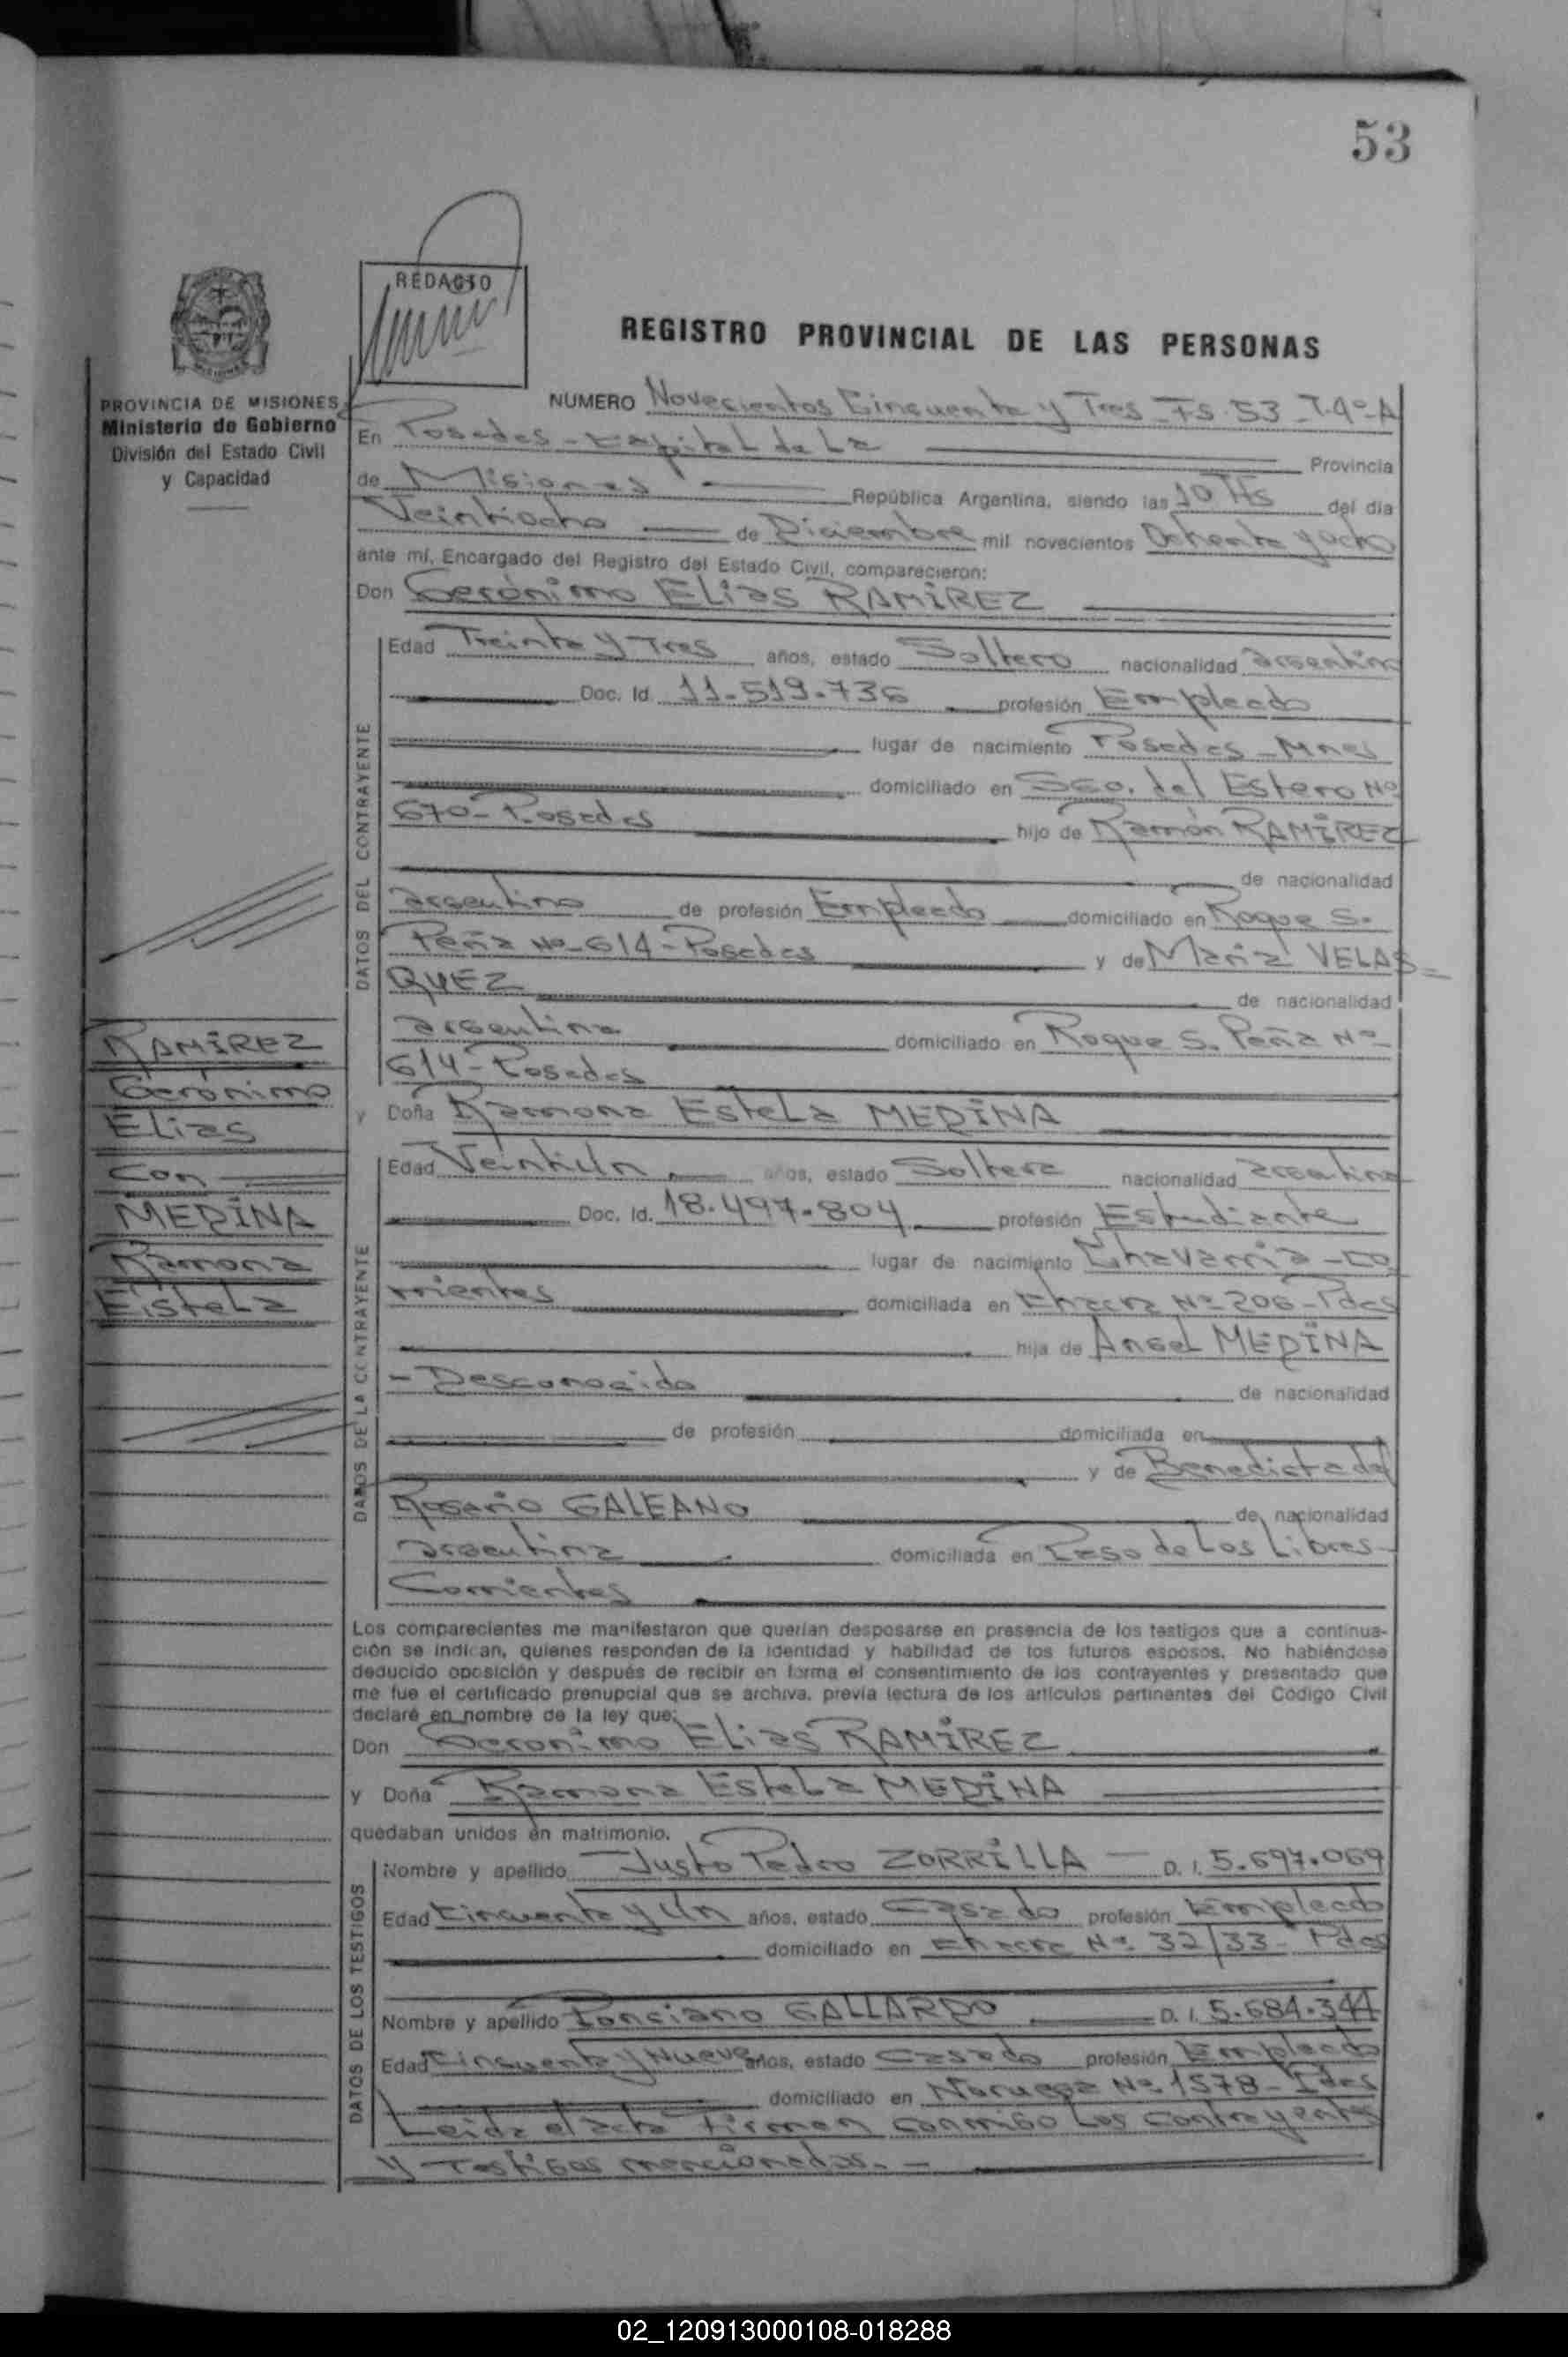 53
REDACTO
REGISTRO PROVINCIAL DE LAS PERSONAS
PROVINCIA DE MISIONES
Ministerio de Gobierno
División del Estado Civil
y Capacidad
NUMERO Novecientos Cincuenta y Tres - Fs. 53 - T. 4º - A
En Posadas - Capital de La Provincia
de Misiones República Argentina, siendo las 10 Hs del día
Veintiocho de Diciembre mil novecientos Ochenta y ocho
ante mí, Encargado del Registro del Estado Civil, comparecieron:
Don Gerónimo Elias RAMIREZ
DATOS DEL CONTRAYENTE
Edad Treinta y Tres años, estado Soltero nacionalidad argentino
Doc. Id. 11.519.736 profesión Empleado
lugar de nacimiento Posadas - Mnes
domiciliado en Sgo. del Estero Nº
670 - Posadas hijo de Ramón RAMIREZ
de nacionalidad
argentino de profesión Empleado domiciliado en Roque S.
Peña Nº 614 - Posadas y de Maria VELAS-
QUEZ de nacionalidad
argentina domiciliado en Roque S. Peña Nº
614 - Posadas
y Doña Ramona Estela MEDINA
RAMIREZ
Gerónimo
Elias
Con
MEDINA
Ramona
Estela
DATOS DE LA CONTRAYENTE
Edad Veintiún años, estado Soltera nacionalidad argentina
Doc. Id. 18.497.804 profesión Estudiante
lugar de nacimiento Chavarria - Co
rrientes domiciliada en Chacra Nº 206 - Pdas
hija de Angel MEDINA
- Desconocido de nacionalidad
de profesión domiciliada en
y de Benedicta del
Rosario GALEANO de nacionalidad
argentina domiciliada en Paso de Los Libres
Corrientes
Los comparecientes me manifestaron que querían desposarse en presencia de los testigos que a continua-
ción se indican, quienes responden de la identidad y habilidad de los futuros esposos. No habiéndose
deducido oposición y después de recibir en forma el consentimiento de los contrayentes y presentado que
me fue el certificado prenupcial que se archiva, previa lectura de los artículos pertinentes del Código Civil
declaré en nombre de la ley que:
Don Geronimo Elias RAMIREZ
y Doña Ramona Estela MEDINA
quedaban unidos en matrimonio.
DATOS DE LOS TESTIGOS
Nombre y apellido Justo Pedro ZORRILLA D. I. 5.697.069
Edad Cincuenta y Un años, estado Casado profesión Empleado
domiciliado en Chacra Nº 32/33 - Pdas
Nombre y apellido Ponciano GALLARDO D. I. 5.684.344
Edad Cincuenta y Nueve años, estado Casado profesión Empleado
domiciliado en Noruega Nº 1578 - Pdas
Leida el acta Firman conmigo Los Contrayentes
y Testigos mencionados. -
02_120913000108-018288